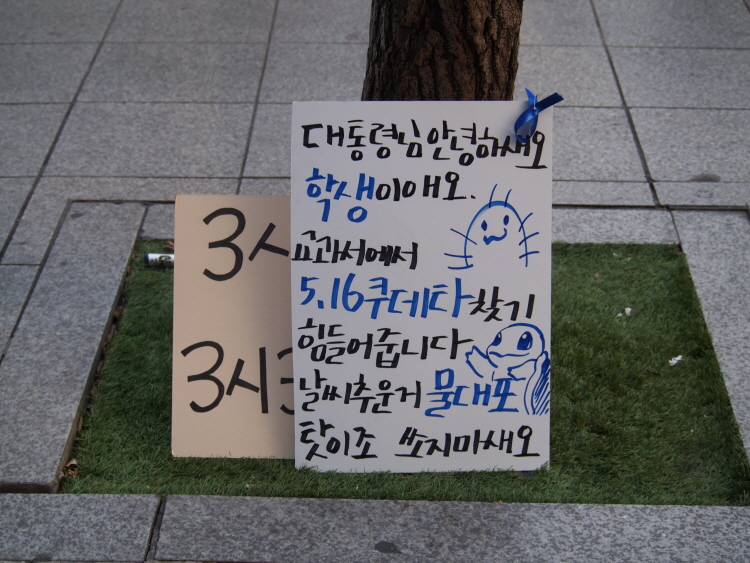 대통령님 안녕하새오
학생이애오.
교과서에서
5.16쿠데타 찾기
힘들어줍니다
날씨추운거 물대포
탓이조 쏘지마새오
3시
3시3